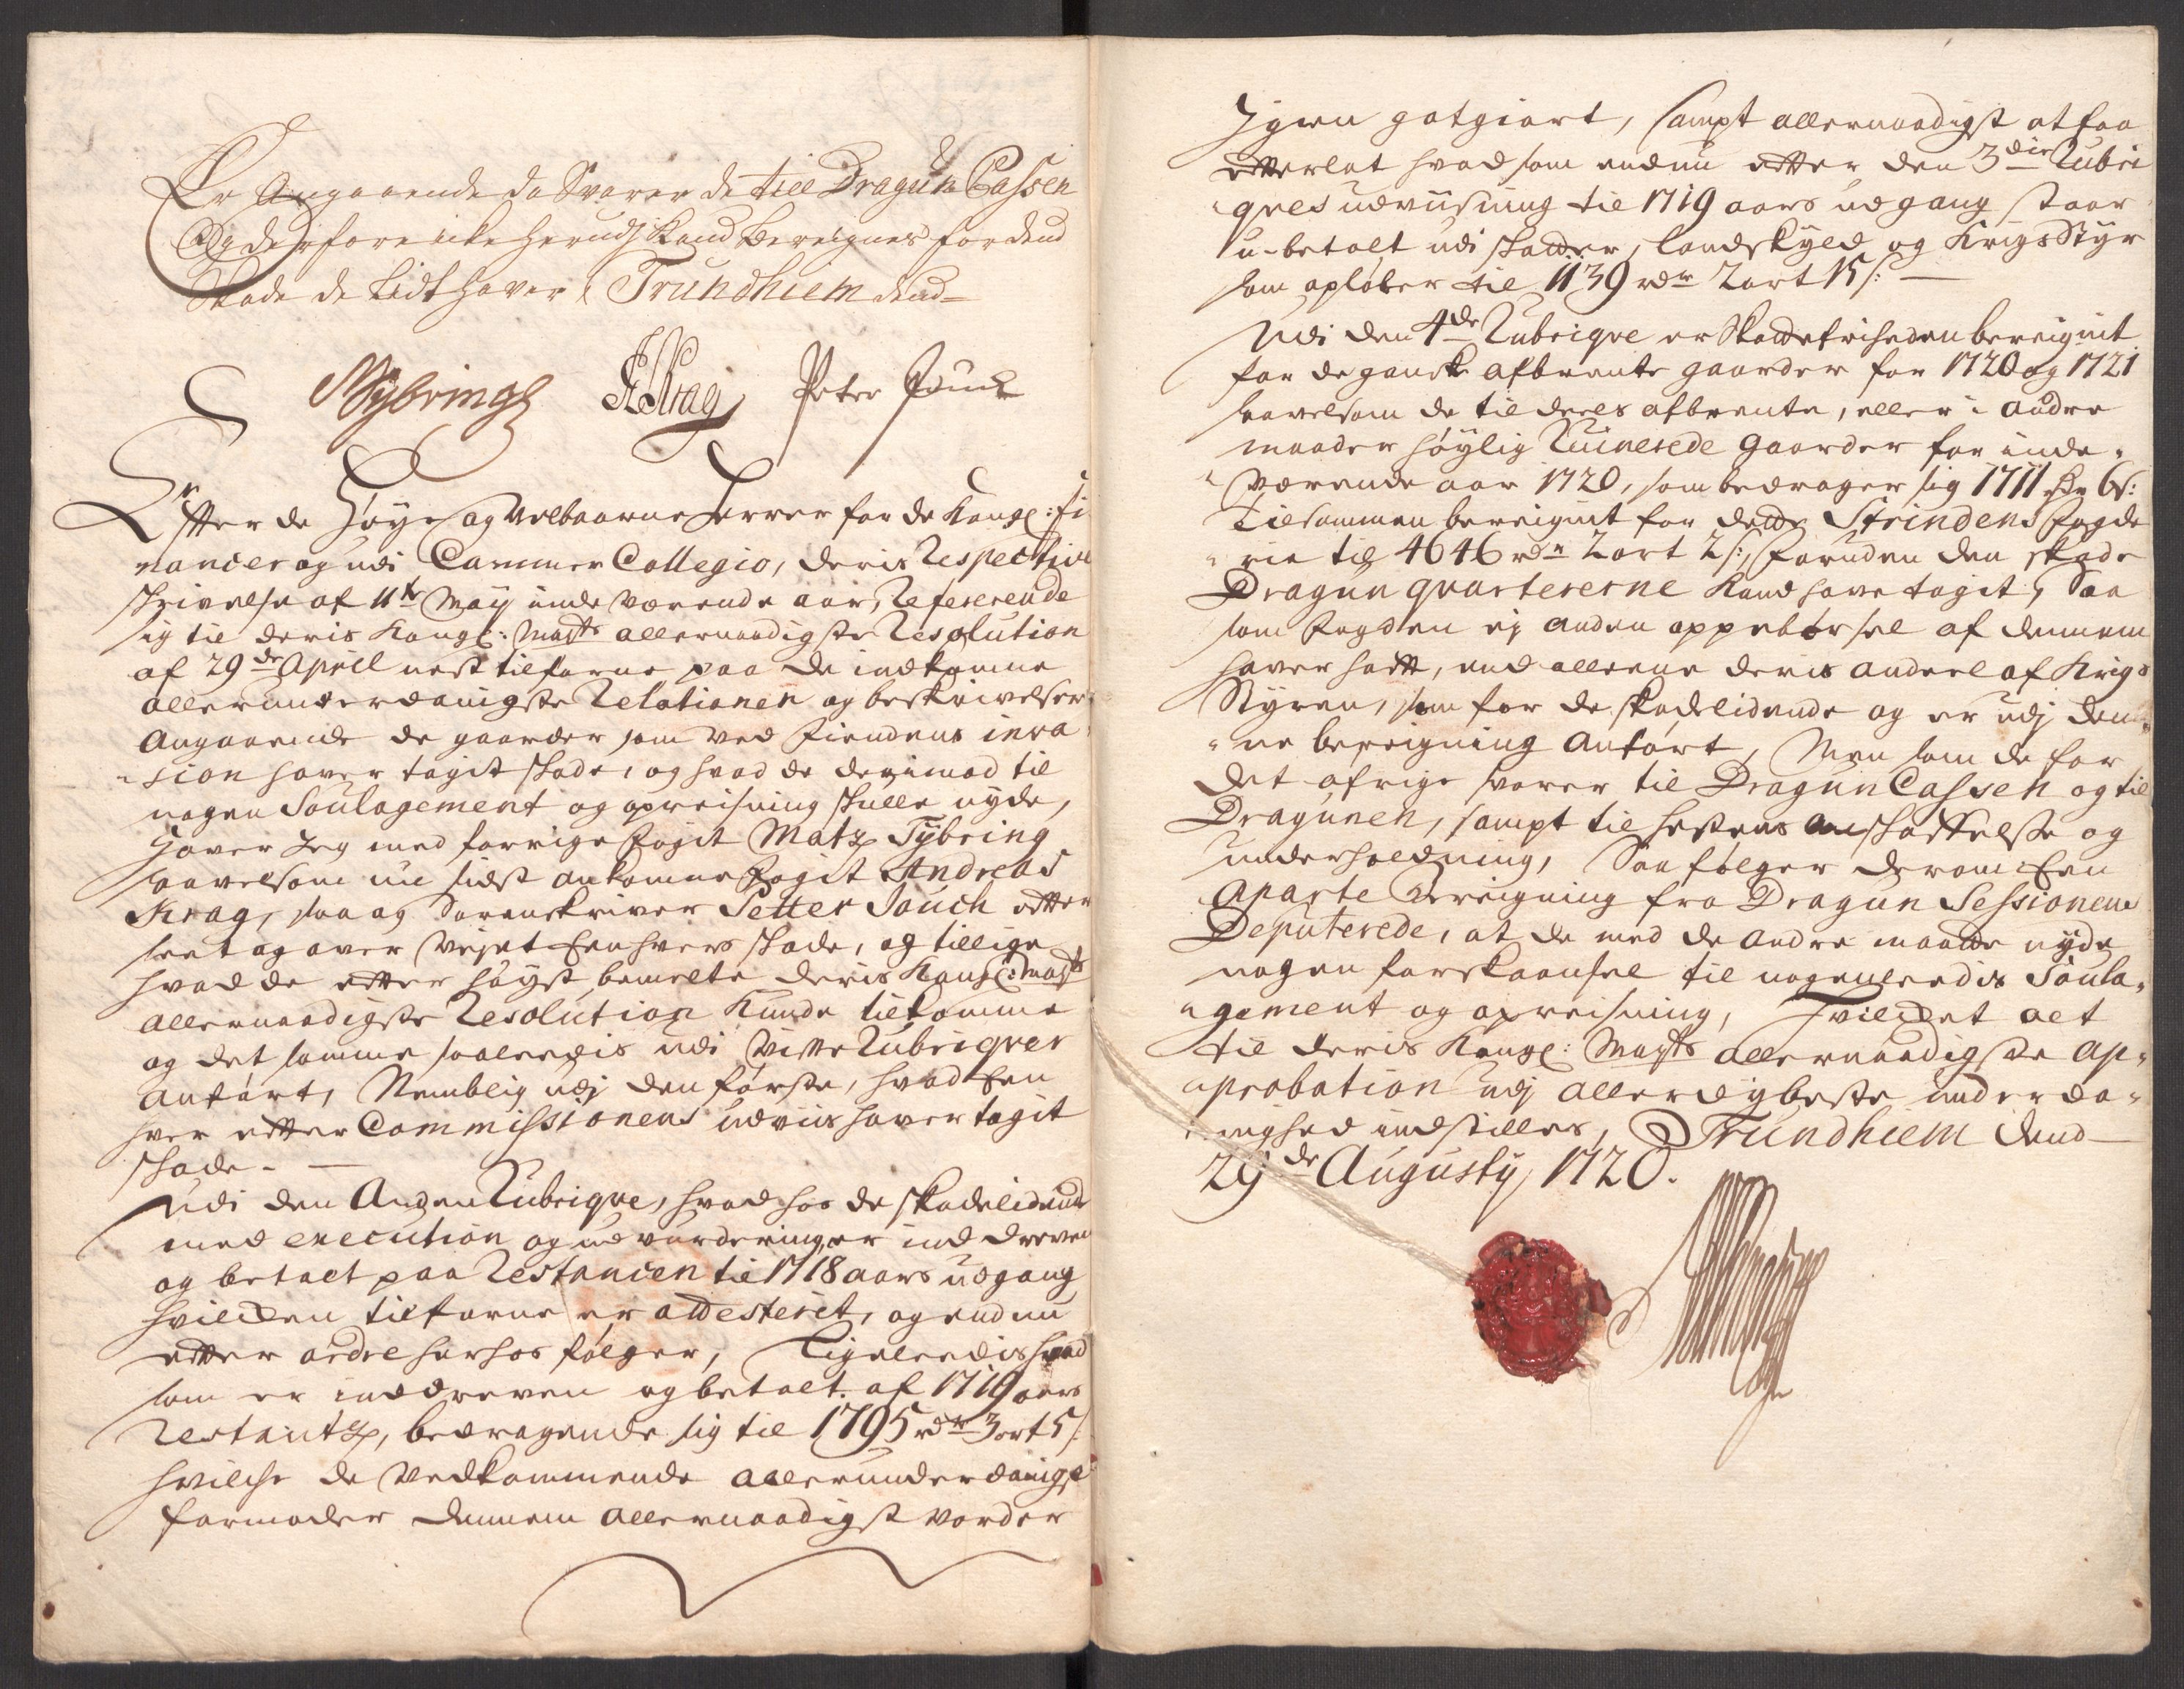 Er Angaaende da Svarer de till Dragun Cassen
Og derfore icke herudj Kand bereignes for dend
Skade de Lidt haver, Trundhiem dend
MTybring AKrag Peter Jouch
Effter de Høye og Velbaarne Herrer for de Kongl: Fi
nancer og udi Cammer Collegio, deris Respective
Skrivelse af 11te Maij inde Værende aar, Refererende
sig til deris Kongl: Maÿts allernaadigste Resolution
af 29de April nest tilforne paa de indkomne
allerunderdanigste Relationer og beskrivelser
Angaaende de gaarder som ved Fiendens inva-
sion haver tagit skade, og hvad de derimod til
nogen Soulagement og opreisning skulle nyde,
Haver Jeg med forrige Fogit Matz Tÿbring
saavelsom nu sidst ankomne Fogit Andreas
Krag, saa og Sorenskriver Petter Jouch efter
seet og over Vejet Een hvers skade, og tillige
hvad de efter høyst bemelte deris Kongl: Mayts
allernaadigste Resolution Kunde tilkomme
og det samme saaledis udi Visse Rubriqver
anført, Nemblig udj den første, hvad Een
hver efter Commissionens udviis haver tagit
skade. —
Udi den Anden Rubriqve, hvad hos de skadelidende
med execution og udvurdering er inddreven
og betalt paa Restancen til 1718 aars udgang
hvilchen tilforne er attesterit, og endnu
efter ordre herhos følger, Ligeleedis hvad
som er inddreven og betalt af 1719 aars
Restantz, bedragende sig til 1795 rdr 3 ort 5 s:
hvilche de Vedkommende allerunderdanigst
formoder dennem allernaadigst vorder
Igien gotgiort, sampt allernaadigst at faa
efterlat hvad som endnu efter den 3die Rubri
qves udviisning til 1719 aars udgang staar
u-betalt udi skatter, Landskyld og KrigsStyr
som opløber til 1139 rdr 2 ort 15 s: —
Udi den 4de Rubriqve er Skattefriheden bereignit
for de gansk afbrente gaarder for 1720 og 1721
saavelsom de til deels afbrente, eller i andre
maader høylig Ruinerede gaarder for inde-
Værende aar 1720, som bedrager sig 1711 rdr 6 s:
Tilsammen bereignit for dette Strindens Fogde
rie til 4646 rdr 2 ort 2 s:, foruden den skade
Dragun qvartererne Kand have tagit, Saa
som Fogden ej anden oppebørsel af dennem
haver hafft, end alleene deris andeel af Krigs
Styren, som for de skadelidende og er udj den-
ne bereigning anført, Men som de for
det øfrige svarer til Dragun Cassen og til
Dragunen, sampt til hestens anskaffelse og
underholdning, Saa følger derom Een
aparte bereigning fra Dragun Sessionens
Deputerede, at de med de andre maatte nyde
nogen forskaansel til nogenleedis Soula-
gement og opreisning, Hvilchet alt
til deris Kongl: Mayts allernaadigste ap-
probation udj allerdybeste underda-
nighed indstilles, Trundhiem dend
29de Augustij 1720.